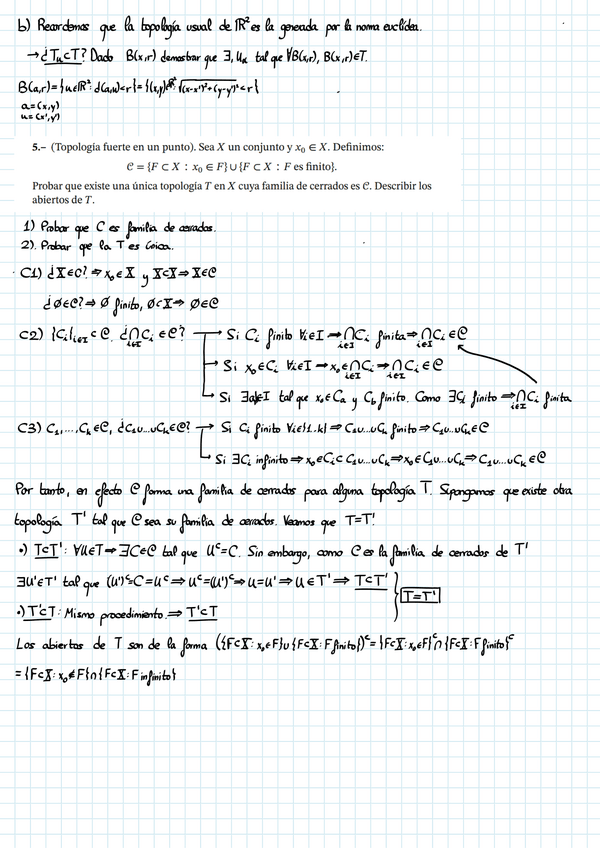 b) Recordemos que la topología usual de ℝ² es la generada por la norma euclídea.
→ ¿T_u⊂T? Dado B(x,r) demostrar que ∃, U_x tal que ∀B(x,r), B(x,r)∈T.
B(a,r)={u∈ℝ²: d(a,u)<r}={(x,y)∈ℝ²: √((x-x')²+(y-y')²)<r}
a=(x,y)
u=(x',y')
5.– (Topología fuerte en un punto). Sea X un conjunto y x₀ ∈ X. Definimos:
𝒞 = {F ⊂ X : x₀ ∈ F} ∪ {F ⊂ X : F es finito}.
Probar que existe una única topología T en X cuya familia de cerrados es 𝒞. Describir los
abiertos de T.
1) Probar que C es familia de cerrados.
2). Probar que la T es única.
C1) ¿X∈C? ⇒ x₀∈X y X⊂X ⇒ X∈C
¿∅∈C? ⇒ ∅ finito, ∅⊂X ⇒ ∅∈C
C2) {C_i}_{i∈I} ⊂ C. ¿⋂_{i∈I} C_i ∈ C? → Si C_i finito ∀i∈I ⇒ ⋂_{i∈I} C_i finita ⇒ ⋂_{i∈I} C_i ∈ C
→ Si x₀∈C_i ∀i∈I ⇒ x₀∈⋂_{i∈I} C_i ⇒ ⋂_{i∈I} C_i ∈ C
→ Si ∃a,b∈I tal que x₀∈C_a y C_b finito. Como ∃C_i finito ⇒ ⋂_{i∈I} C_i finita
C3) C₁,...,C_k∈C, ¿C₁∪...∪C_k∈C? → Si C_i finito ∀i∈{1..k} ⇒ C₁∪...∪C_k finito ⇒ C₁∪...∪C_k∈C
→ Si ∃C_i infinito ⇒ x₀∈C_i⊂C₁∪...∪C_k ⇒ x₀∈C₁∪...∪C_k ⇒ C₁∪...∪C_k∈C
Por tanto, en efecto C forma una familia de cerrados para alguna topología T. Supongamos que existe otra
topología T' tal que C sea su familia de cerrados. Veamos que T=T'.
•) T⊂T': ∀U∈T ⇒ ∃C∈C tal que U^c=C. Sin embargo, como C es la familia de cerrados de T'
∃U'∈T' tal que (U')^c=C=U^c ⇒ U^c=(U')^c ⇒ U=U' ⇒ U∈T' ⇒ T⊂T'
T=T'
•) T'⊂T: Mismo procedimiento. ⇒ T'⊂T
Los abiertos de T son de la forma ({F⊂X: x₀∈F}∪{F⊂X: F finito})^c = {F⊂X: x₀∈F}^c ∩ {F⊂X: F finito}^c
= {F⊂X: x₀∉F}∩{F⊂X: F infinito}